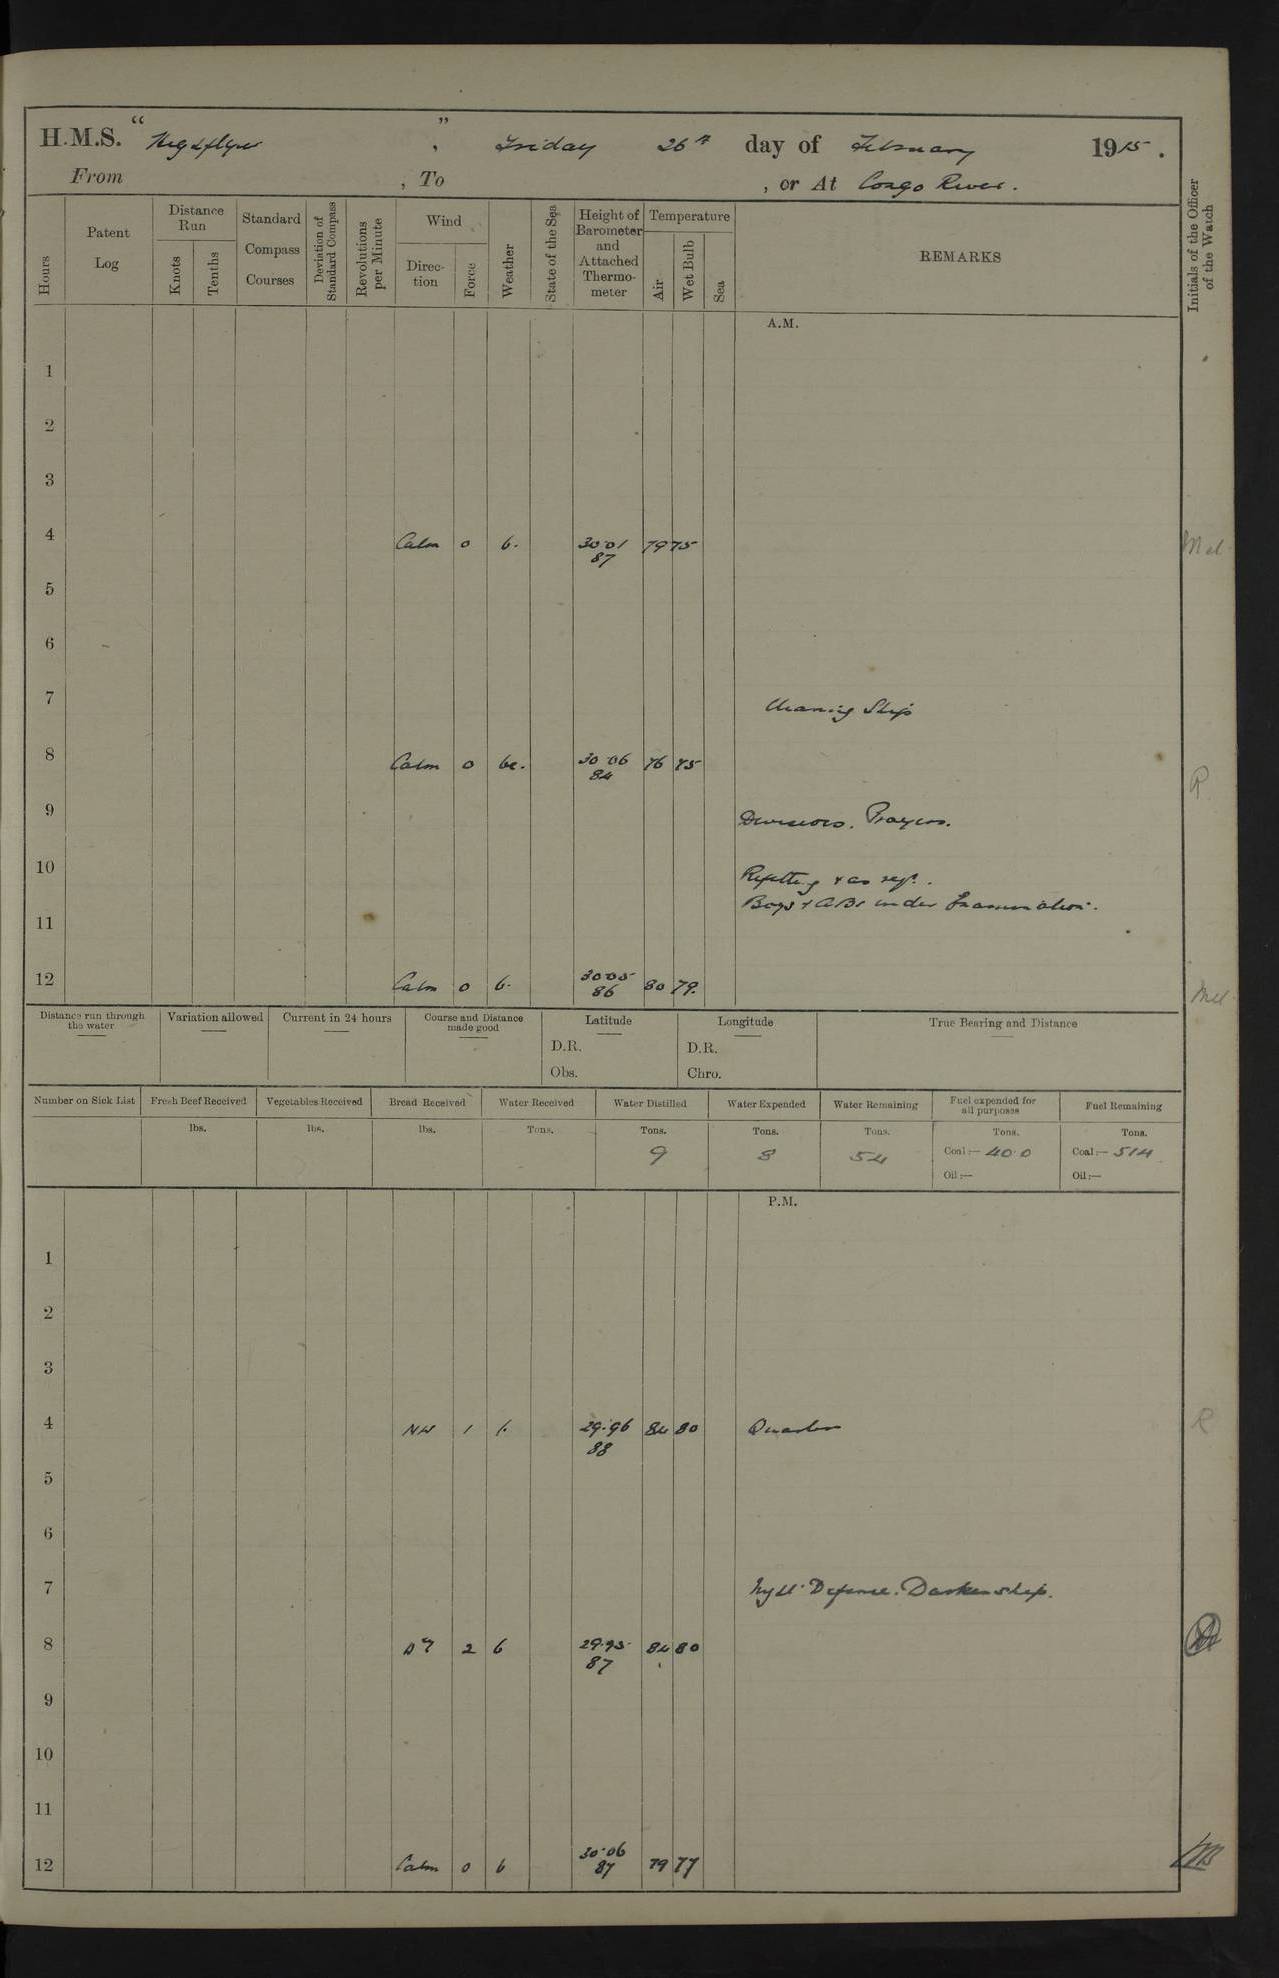 H.M.S. "Highflyer", Friday 26th day of February 1915.
From , To , or At Congo River.
Hours
Patent Log
Distance Run
Knots
Tenths
Standard Compass Courses
Deviation of Standard Compass
Revolutions per Minute
Wind
Direction
Force
Weather
State of the Sea
Height of Barometer and Attached Thermometer
Temperature
Air
Wet Bulb
Sea
REMARKS
Initials of the Officer of the Watch
A.M.
1
2
3
4 Calm 0 b. 30.01 79 75
87
5
6
7 Cleaning Ship
8 Calm 0 bc. 30.06 76 75 R
84
9 Divisions. Prayers.
10 Refitting & as req.
Boys & ABs under Examination.
11
12 Calm 0 b. 30.05 80 79.
86
Distance run through the water
Variation allowed
Current in 24 hours
Course and Distance made good
Latitude
D.R.
Obs.
Longitude
D.R.
Chro.
True Bearing and Distance
Number on Sick List
Fresh Beef Received
Vegetables Received
Bread Received
Water Received
Water Distilled
Water Expended
Water Remaining
Fuel expended for all purposes
Fuel Remaining
lbs. lbs. lbs. Tons. Tons. Tons. Tons. Tons. Tons.
9 8 54 Coal:— 40.0 Coal:— 514
Oil:— Oil:—
P.M.
1
2
3
4 NW 1 b. 29.96 84 80 Quarters R
88
5
6
7 Night Defence. Darken ship.
8 2 b 29.95 84 80
87
9
10
11
12 Calm 0 b 30.06 79 77
87